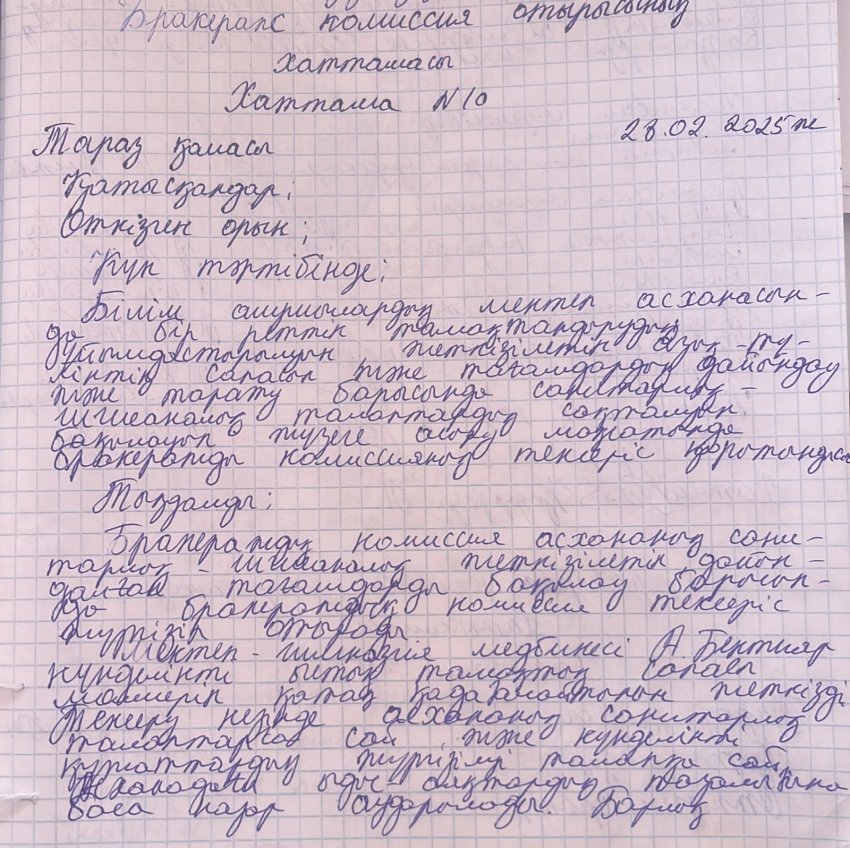 Бракераж комиссия отырысының
хаттамасы
Хаттама N10
28.02.2025ж
Тараз қаласы
Қатысқандар;
Өткізген орын;
Күн тәртібінде;
Білім алушылардың мектеп асханасын-
да бір реттік тамақтандырудың
ұйымдастырылуын жеткізілетін азық-тү-
ліктің сапасын және тағамдардың дайындау
және тарату барысында санитарлық-
гигиеналық талаптардың сақталуын
бақылауын жүзеге асыру мақсатында
бракеражды комиссияның тексеріс қорытындысы
Тыңдалды;
Бракераждық комиссия асхананың сани-
тарлық-гигиеналық жеткізілетін дайын-
далған тағамдарды бақылау барысын-
да бракераждық комиссия тексеріс
жүргізіп отырады
Мектеп-гимназия медбикесі А Бектияр
күнделікті ыстық тамақтың сапасы
мөлшерін қатаң қадағалайтынын жеткізді
Тексеру кезінде асхананың санитарлық
талаптарға сай және күнделікті
құжаттардың жүргізілуі талапқа сай,
ыдыс-аяқтардың тазалығына
баса назар аударылады. Барлық